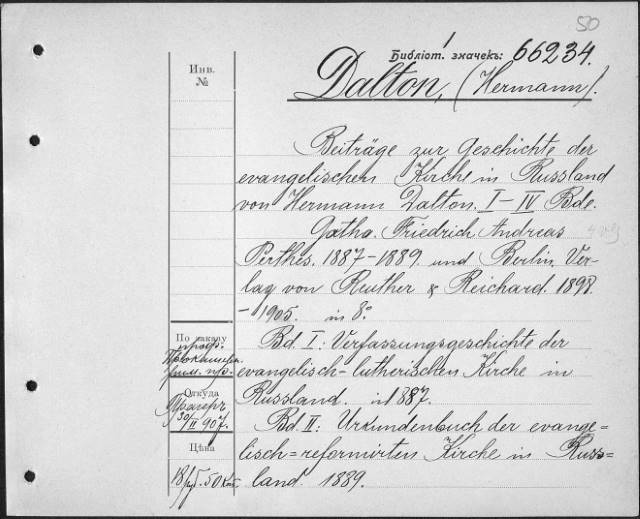 50
Библіот. значекъ: 66234.
Dalton, (Hermann).
Инв.
№
Beiträge zur Geschichte der
evangelischen Kirche in Russland
von Hermann Dalton. I–IV Bde.
Gotha. Friedrich Andreas
Perthes. 1887–1889. und Berlin. Ver-
lag von Reuther & Reichard. 1898.
–1905. in 8°.
Bd. I: Verfassungsgeschichte der
evangelisch-lutherischen Kirche in
Russland. in 1887.
Bd. II: Urkundenbuch der evange=
lisch=reformirten Kirche in Russ=
land. 1889.
По заказу
проф.
Откуда
30/II 907.
Цѣна
18 руб. 50 коп.